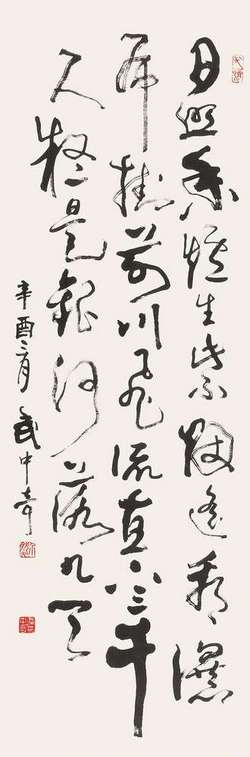 日照香爐生紫烟遙看瀑
布掛前川飛流直下三千
尺疑是銀河落九天
辛酉三月武中奇